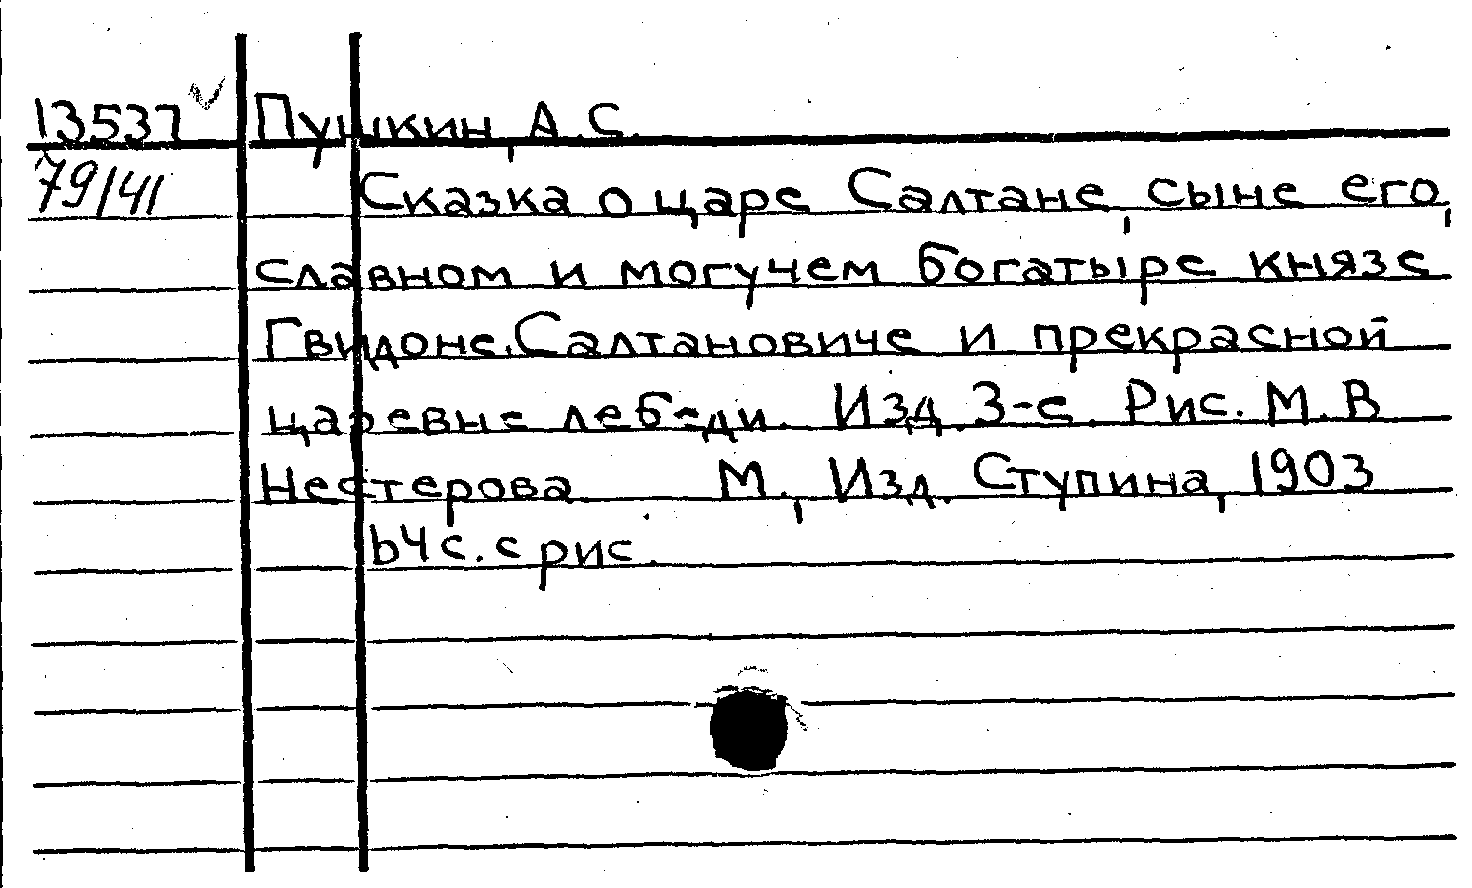 13537 Пушкин, А.С.
79/41 Сказка о царе Салтане, сыне его,
славном и могучем богатыре князе
Гвидоне Салтановиче и прекрасной
царевне лебеди. Изд. 3-е. Рис. М.В
Нестерова М., Изд. Ступина, 1903
64 с. с рис.